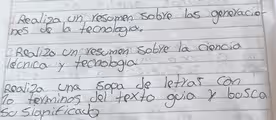 Realiza un resumen sobre las generacio-
nes de la tecnologia.
Realiza un resumen sobre la ciencia
técnica y tecnologia
Realiza una sopa de letras con
10 terminos del texto guia y busca
su significado